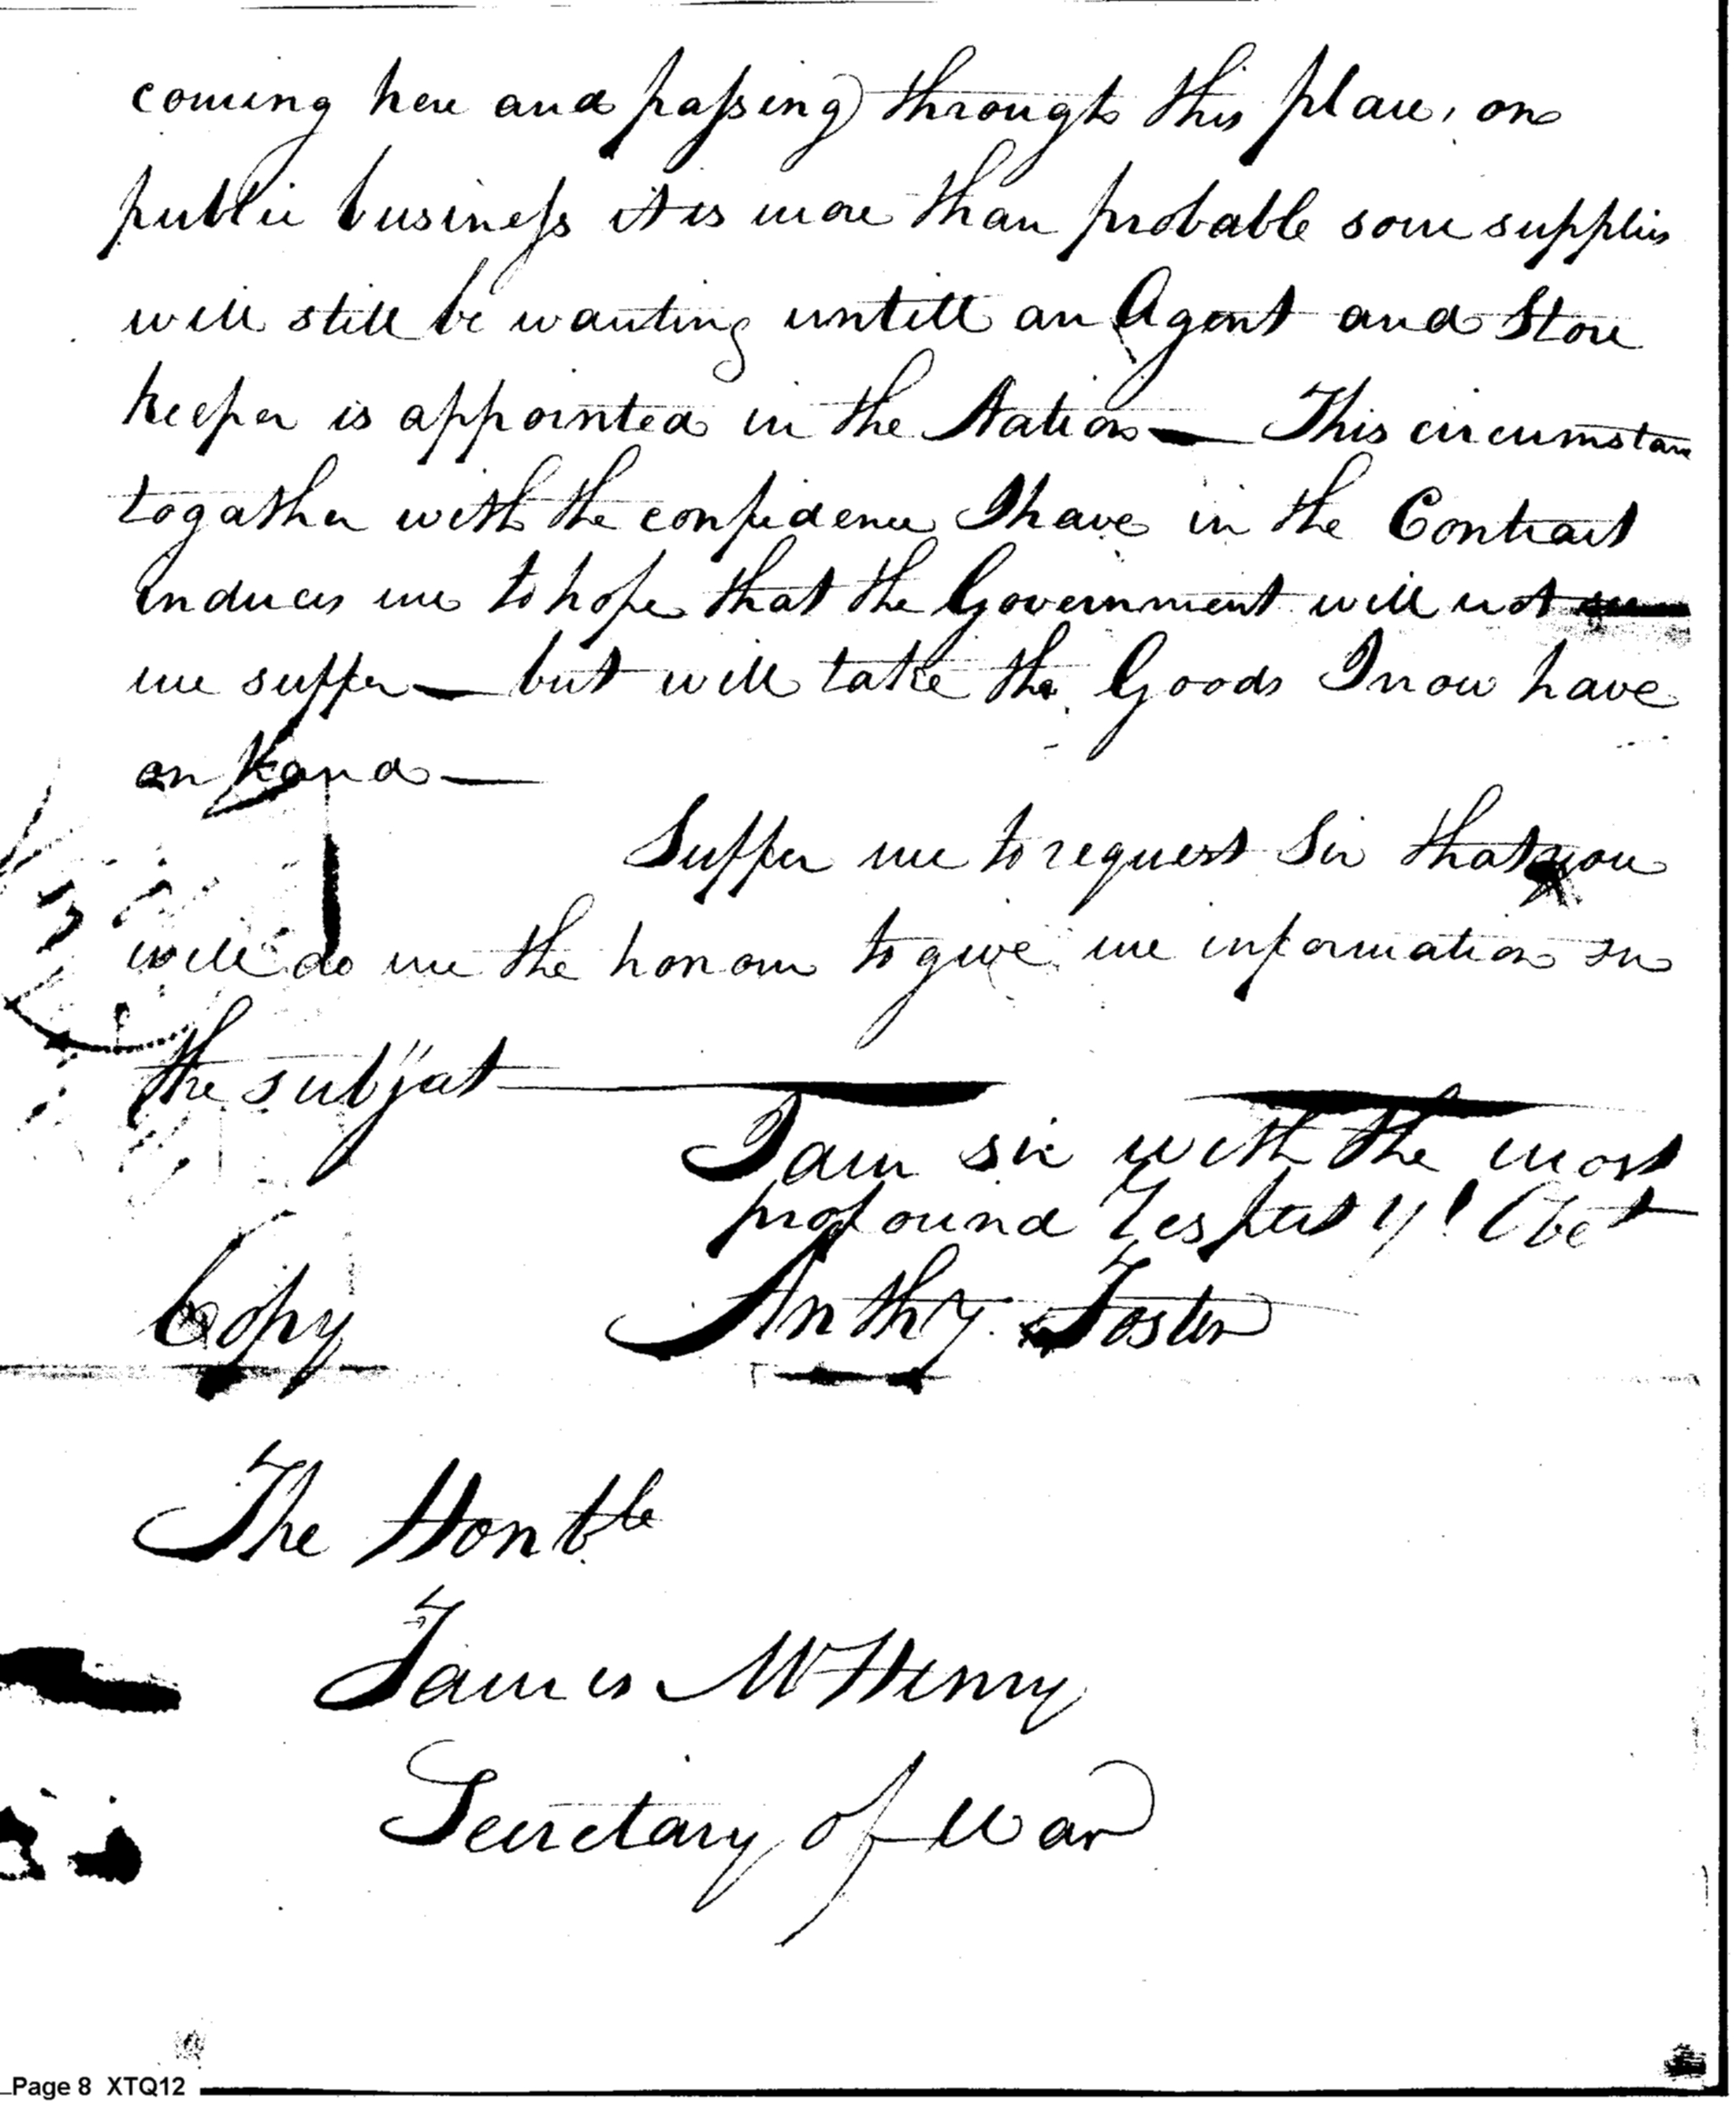 coming here and passing through this place, on
public business it is more than probable some supplies
will still be wanting untill an Agent and Store
keeper is appointed in the Nation — This circumstance
togather with the confidence I have in the Contract
enduces me to hope that the Government will not
me suffer — but will take the Goods I now have
on hand —
Suffer me to request Sir that you
will do me the honour to give me information on
the subject —
I am sir with the most
profound respect Yr Obet
Copy Anthy Foster
The Honble
James McHenry
Secretary of War
Page 8 XTQ12